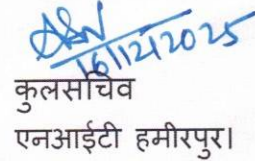 16/12/2025
कुलसचिव
एनआईटी हमीरपुर।